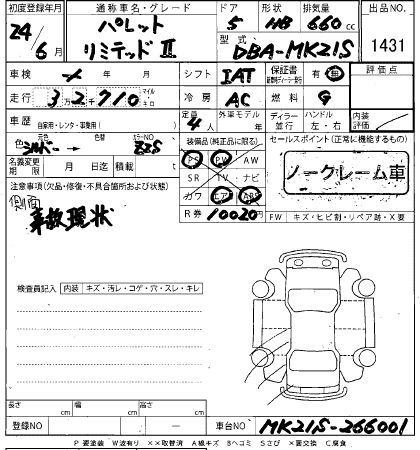 初度登録年月 通称車名・グレード ドア 形状 排気量 出品NO.
24 6月 パレット リミテッドⅡ 5 HB 660cc 1431
型式 DBA-MK21S
車検 年 月 シフト IAT 保証書 有 無 評価点
走行 3万2千710 マイル キロ 冷房 AC 燃料 G
車歴 自家用・レンタ・事業用( ) 定員 4人 外車モデル 年 ディーラー 並行 ハンドル 左・右 内装評価
元色 シルバー 色 カラーNO Z2S 装備品(純正品に限る) セールスポイント(正常に機能するもの)
名義変更期限 月 日迄 積載 PS PW AW ノークレーム車
注意事項(欠品・修復・不具合箇所および状態) SR TV ナビ
側面 カワ エアB ABS
事故現状 R券 10020円 FW キズ・ヒビ割・リペア跡・X要
検査員記入 内装 キズ・汚レ・コゲ・穴・スレ・キレ
長さ cm 幅 cm 高さ cm
登録NO — 車台NO MK21S-266001
P要塗装 W波有り ××取替済 A線キズ Bヘコミ Sさび ×要交換 C腐食